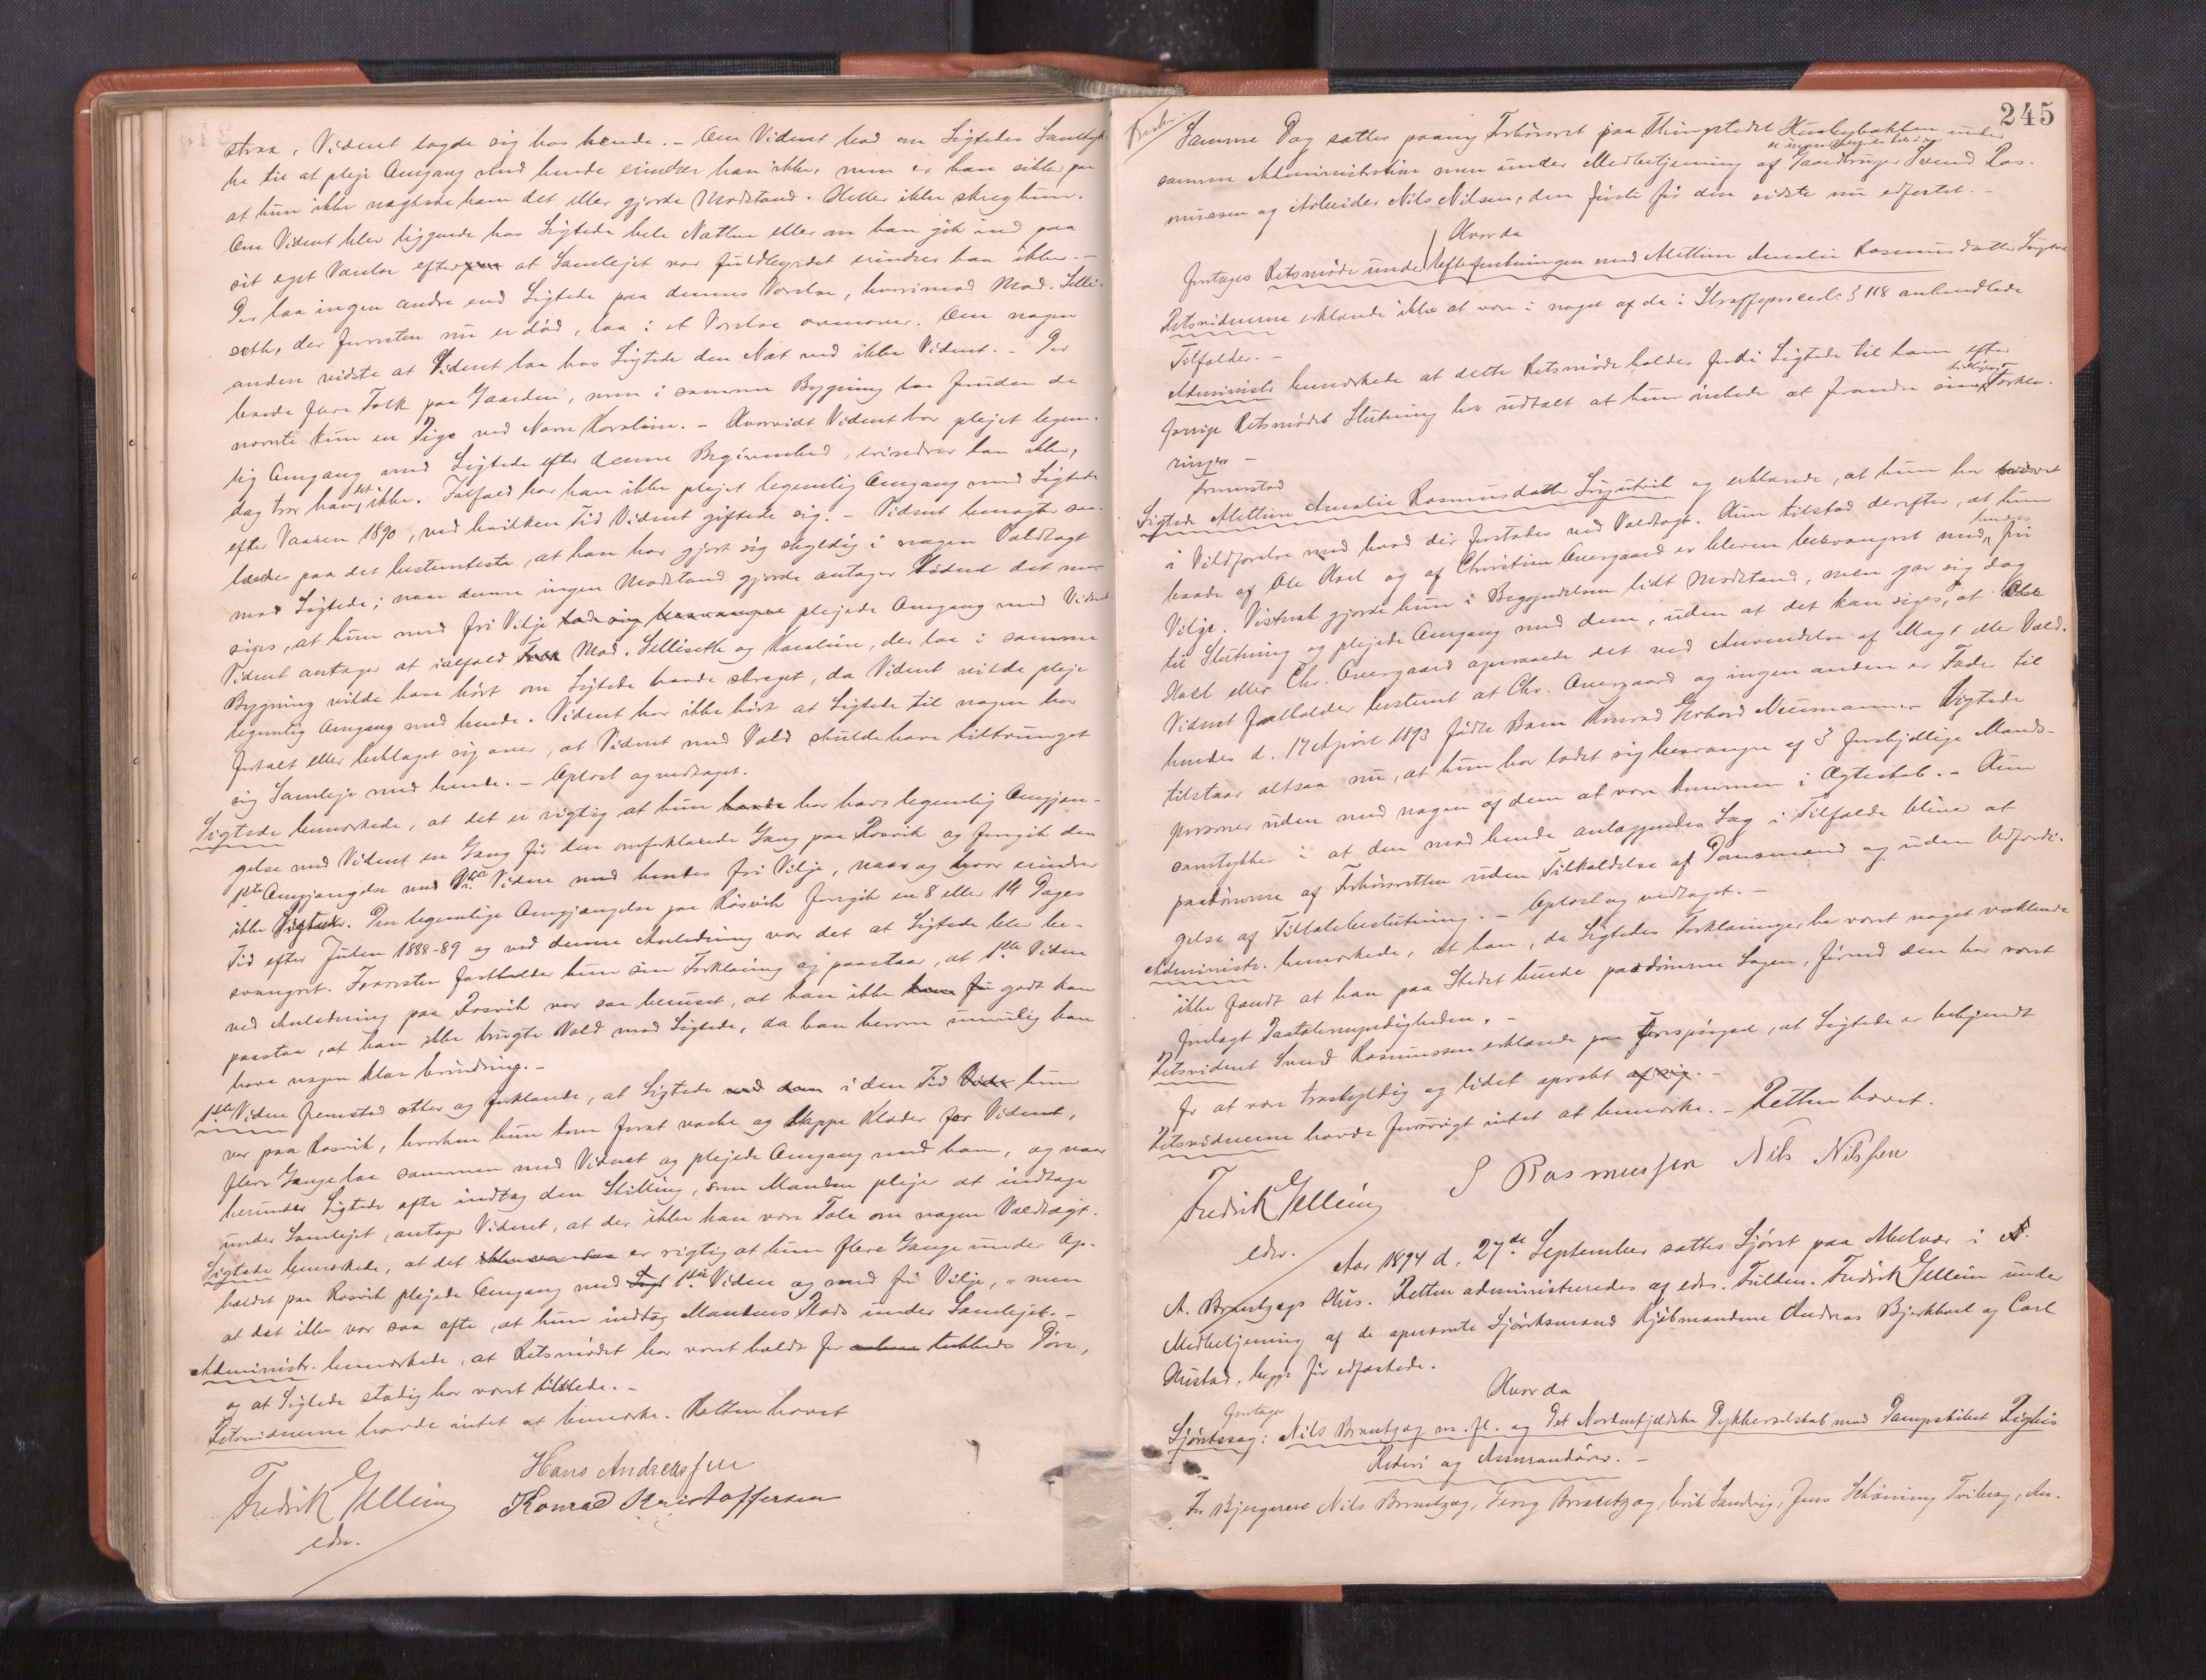 strax, Vidnet lagde sig hos hende. - Om Vidnet bad om Sigtedes Samtyk-
ke til at pleje Omgang med hende erindrer han ikke, men er han sikker paa
at hun ikke nægtede ham det eller gjorde Modstand. Heller ikke skreg hun.
Om Vidnet blev liggende hos Sigtede hele Natten eller om han gik ind paa
sit eget Værelse efter at Samlejet var fuldbyrdet erindrer han ikke. -
Der laa ingen andre end Sigtede paa dennes Værelse, hvorimod Mad. Selli-
seth, der forresten nu er død, laa i et Værelse ovenover. Om nogen
anden vidste at Vidnet laa hos Sigtede den Nat ved ikke Vidnet. - Der
havde flere Folk paa Gaarden, men i samme Bygning laa foruden de
nævnte kun en Pige ved Navn Karoline. - Hvorvidt Vidnet har plejet legem-
lig Omgang med Sigtede efter denne Begivenhed, erindrer han ikke,
dog tror han det ikke. Ialfald har han ikke plejet legemlig Omgang med Sigtede
efter Vaaren 1890, ved hvilken Tid Vidnet giftede sig. - Vidnet benægter saa-
ledes paa det bestemteste, at han har gjort sig skyldig i nogen Voldtægt
mod Sigtede; naar denne ingen Modstand gjorde antager Vidnet det maa
siges, at hun med fri Vilje lod sig besvangre plejede Omgang med Vidnet.
Vidnet antager at ialfald Mad. Selliseth og Karoline, der laa i samme
Bygning vilde have hørt om Sigtede havde skreget, da Vidnet vilde pleje
legemlig Omgang med hende. Vidnet har ikke hørt at Sigtede til nogen har
fortalt eller beklaget sig over, at Vidnet med Vold skulde have tiltvunget
sig Samleje med hende. - Oplæst og vedtaget.
Sigtede bemærkede, at det er rigtig at hun havde har havt legemlig Omgjæn-
gelse med Vidnet en Gang før den omforklarede Gang paa Rosvik og foregik den
1ste Omgjængelse med 1ste Vidne med hendes fri Vilje, naar og hvor erindrer
ikke Sigtede. Den legemlige Omgjængelse paa Rosvik foregik en 8 eller 14 Dages
Tid efter Julen 1888-89 og ved denne Anledning var det at Sigtede blev be-
svangret. Forresten fastholder hun sin Forklaring og paastaar, at 1ste Vidne
ved Anledning paa Rosvik var saa beruset, at han ikke godt kan
paastaa, at han ikke brugte Vold mod Sigtede, da han herom umulig kan
have nogen klar Erindring. -
1ste Vidne fremstod atter og forklarede, at Sigtede i den Tid hun
var paa Rosvik, hvorhen hun kom for at vaske og lappe Klæder for Vidnet,
flere Gange laa sammen med Vidnet og plejede Omgang med ham, og naar
herunder Sigtede ofte indtog den Stilling, som Manden plejer at indtage
under Samlejet, antager Vidnet, at der ikke kan være Tale om nogen Voldtægt.
Sigtede bemærkede, at det er rigtig at hun flere Gange under Op-
holdet paa Rosvik plejede Omgang med 1ste Vidne og med fri Vilje, men
at det ikke var saa ofte, at hun indtog Mandens Plads under Samlejet. -
Administr. bemærkede, at Retsmødet har været holdt for lukkede Døre,
og at Sigtede stadig har været tilstede. -
Retsvidnerne havde intet at bemærke. Retten hævet
Fredrik Gelleing Hans Andreassen
edsv. Konrad Kristoffersen
245
Samme Dag sattes paany Forhørsret paa Thingstedet Husbybakken under
samme Administration men under Medbetjening af Gaardbruger Svend Ras-
mussen og Arbeider Nils Nilsen, den første før den sidste nu edfæstet. -
Hvorda
foretages Retsmøde under Efterforskningen mod Mettine Amalie Rasmusdatter
Retsvidnerne erklærede ikke at være i noget af de i Straffeproceslov. § 118 anhandlede
Tilfælder. -
Administr. bemærkede at dette Retsmøde holdes fordi Sigtede til ham efter
forrige Retsmødes Slutning har udtalt at hun ønskede at forandre sine tidligere Forkla-
ringer -
Fremstod
Sigtede Mettine Amalie Rasmusdatter og erklærede, at hun har været
i Vildfarelse med hvad der forstaaes ved Voldtægt. Hun tilstod derefter, at hun
baade af Ole Hoel og af Christian Overgaard er bleven besvangret med hendes fri
Vilje. Vistnok gjorde hun i Begyndelsen lidt Modstand, men gav sig dog
til Slutning og plejede Omgang med dem, uden at det kan siges, at Ole
Hoel eller Chr. Overgaard opnaaede det ved Anvendelse af Magt eller Vold.
Vidnet fastholder bestemt at Chr. Overgaard og ingen anden er Fader til
hendes d. 17 April 1893 fødte Barn Konrad Gerhard Neumann. - Sigtede
tilstaar altsaa nu, at hun har ladet sig besvangre af 3 forskjellige Mands-
personer uden med nogen af dem at være kommen i Ægteskab. - Hun
samtykker i at den mod hende anlæggendes Sag i Tilfælde bliver at
paadømme af Forhørsretten uden Tilkaldelse af Domsmænd og uden Udfærdi-
gelse af Tiltalebeslutning. - Oplæst og vedtaget. -
Administr. bemærkede, at han, da Sigtedes Forklaringer har været noget vaklende
ikke fandt at han paa Stedet burde paadømme Sagen, førend den har været
forelagt Paatalemyndigheden. -
Retsvidnet Svend Rasmussen erklærede paa Forespørgsel, at Sigtede er bekjendt
for at være troskyldig og lidet oprakt af sig. -
Retsvidnerne havde forøvrigt intet at bemærke. - Retten hævet.
Fredrik Gelleing S Rasmussen Nils Nilssen
edsv.
Aar 1894 d. 27de September sattes Sjøret paa Melvær i
A. Brandtzægs Hus. Retten administreredes af edsv. Fuldm. Fredrik Gellein under
Medbetjening af de opnævnte Sjøretsmænd Kjøbmændene Andreas Bjerkhoel og Carl
Hustad, begge før edfæstede.
Hvorda
foretages
Sjøretssag: Nils Brandtzæg m. fl. og Det Nordenfjeldske Dykkerselskab mod Dampskibet
Rederi og Assurandører. -
For Bjergerne Nils Brandtzæg, Georg Brandtzæg, Erik Sandvig, Jens Schøning